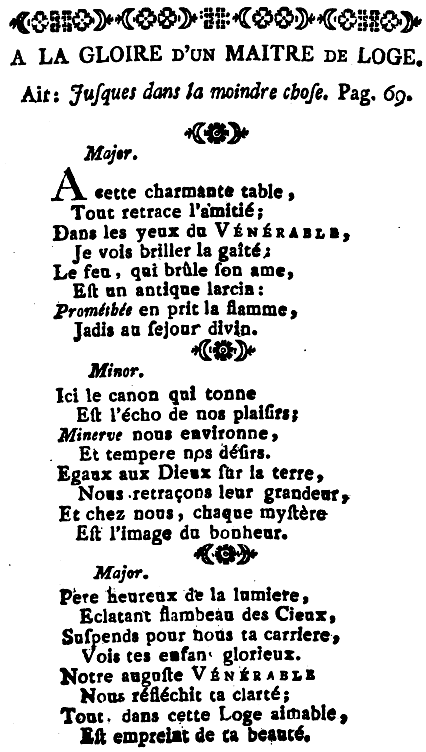 A LA GLOIRE D'UN MAITRE DE LOGE.
Air: Juſques dans la moindre choſe. Pag. 69.
Major.
A cette charmante table,
Tout retrace l'amitié;
Dans les yeux du VÉNÉRABLE,
Je vois briller la gaîté;
Le feu, qui brûle ſon ame,
Eſt un antique larcin:
Prométhée en prit la flamme,
Jadis au ſejour divin.
Minor.
Ici le canon qui tonne
Eſt l'écho de nos plaiſirs;
Minerve nous environne,
Et tempere nos déſirs.
Egaux aux Dieux ſur la terre,
Nous retraçons leur grandeur,
Et chez nous, chaque myſtère
Eſt l'image du bonheur.
Major.
Pere heureux de la lumiere,
Eclatant flambeau des Cieux,
Suſpends pour nous ta carriere,
Vois tes enfans glorieux.
Notre auguſte VÉNÉRABLE
Nous réfléchit ta clarté;
Tout, dans cette Loge aimable,
Eſt empreint de ta beauté.